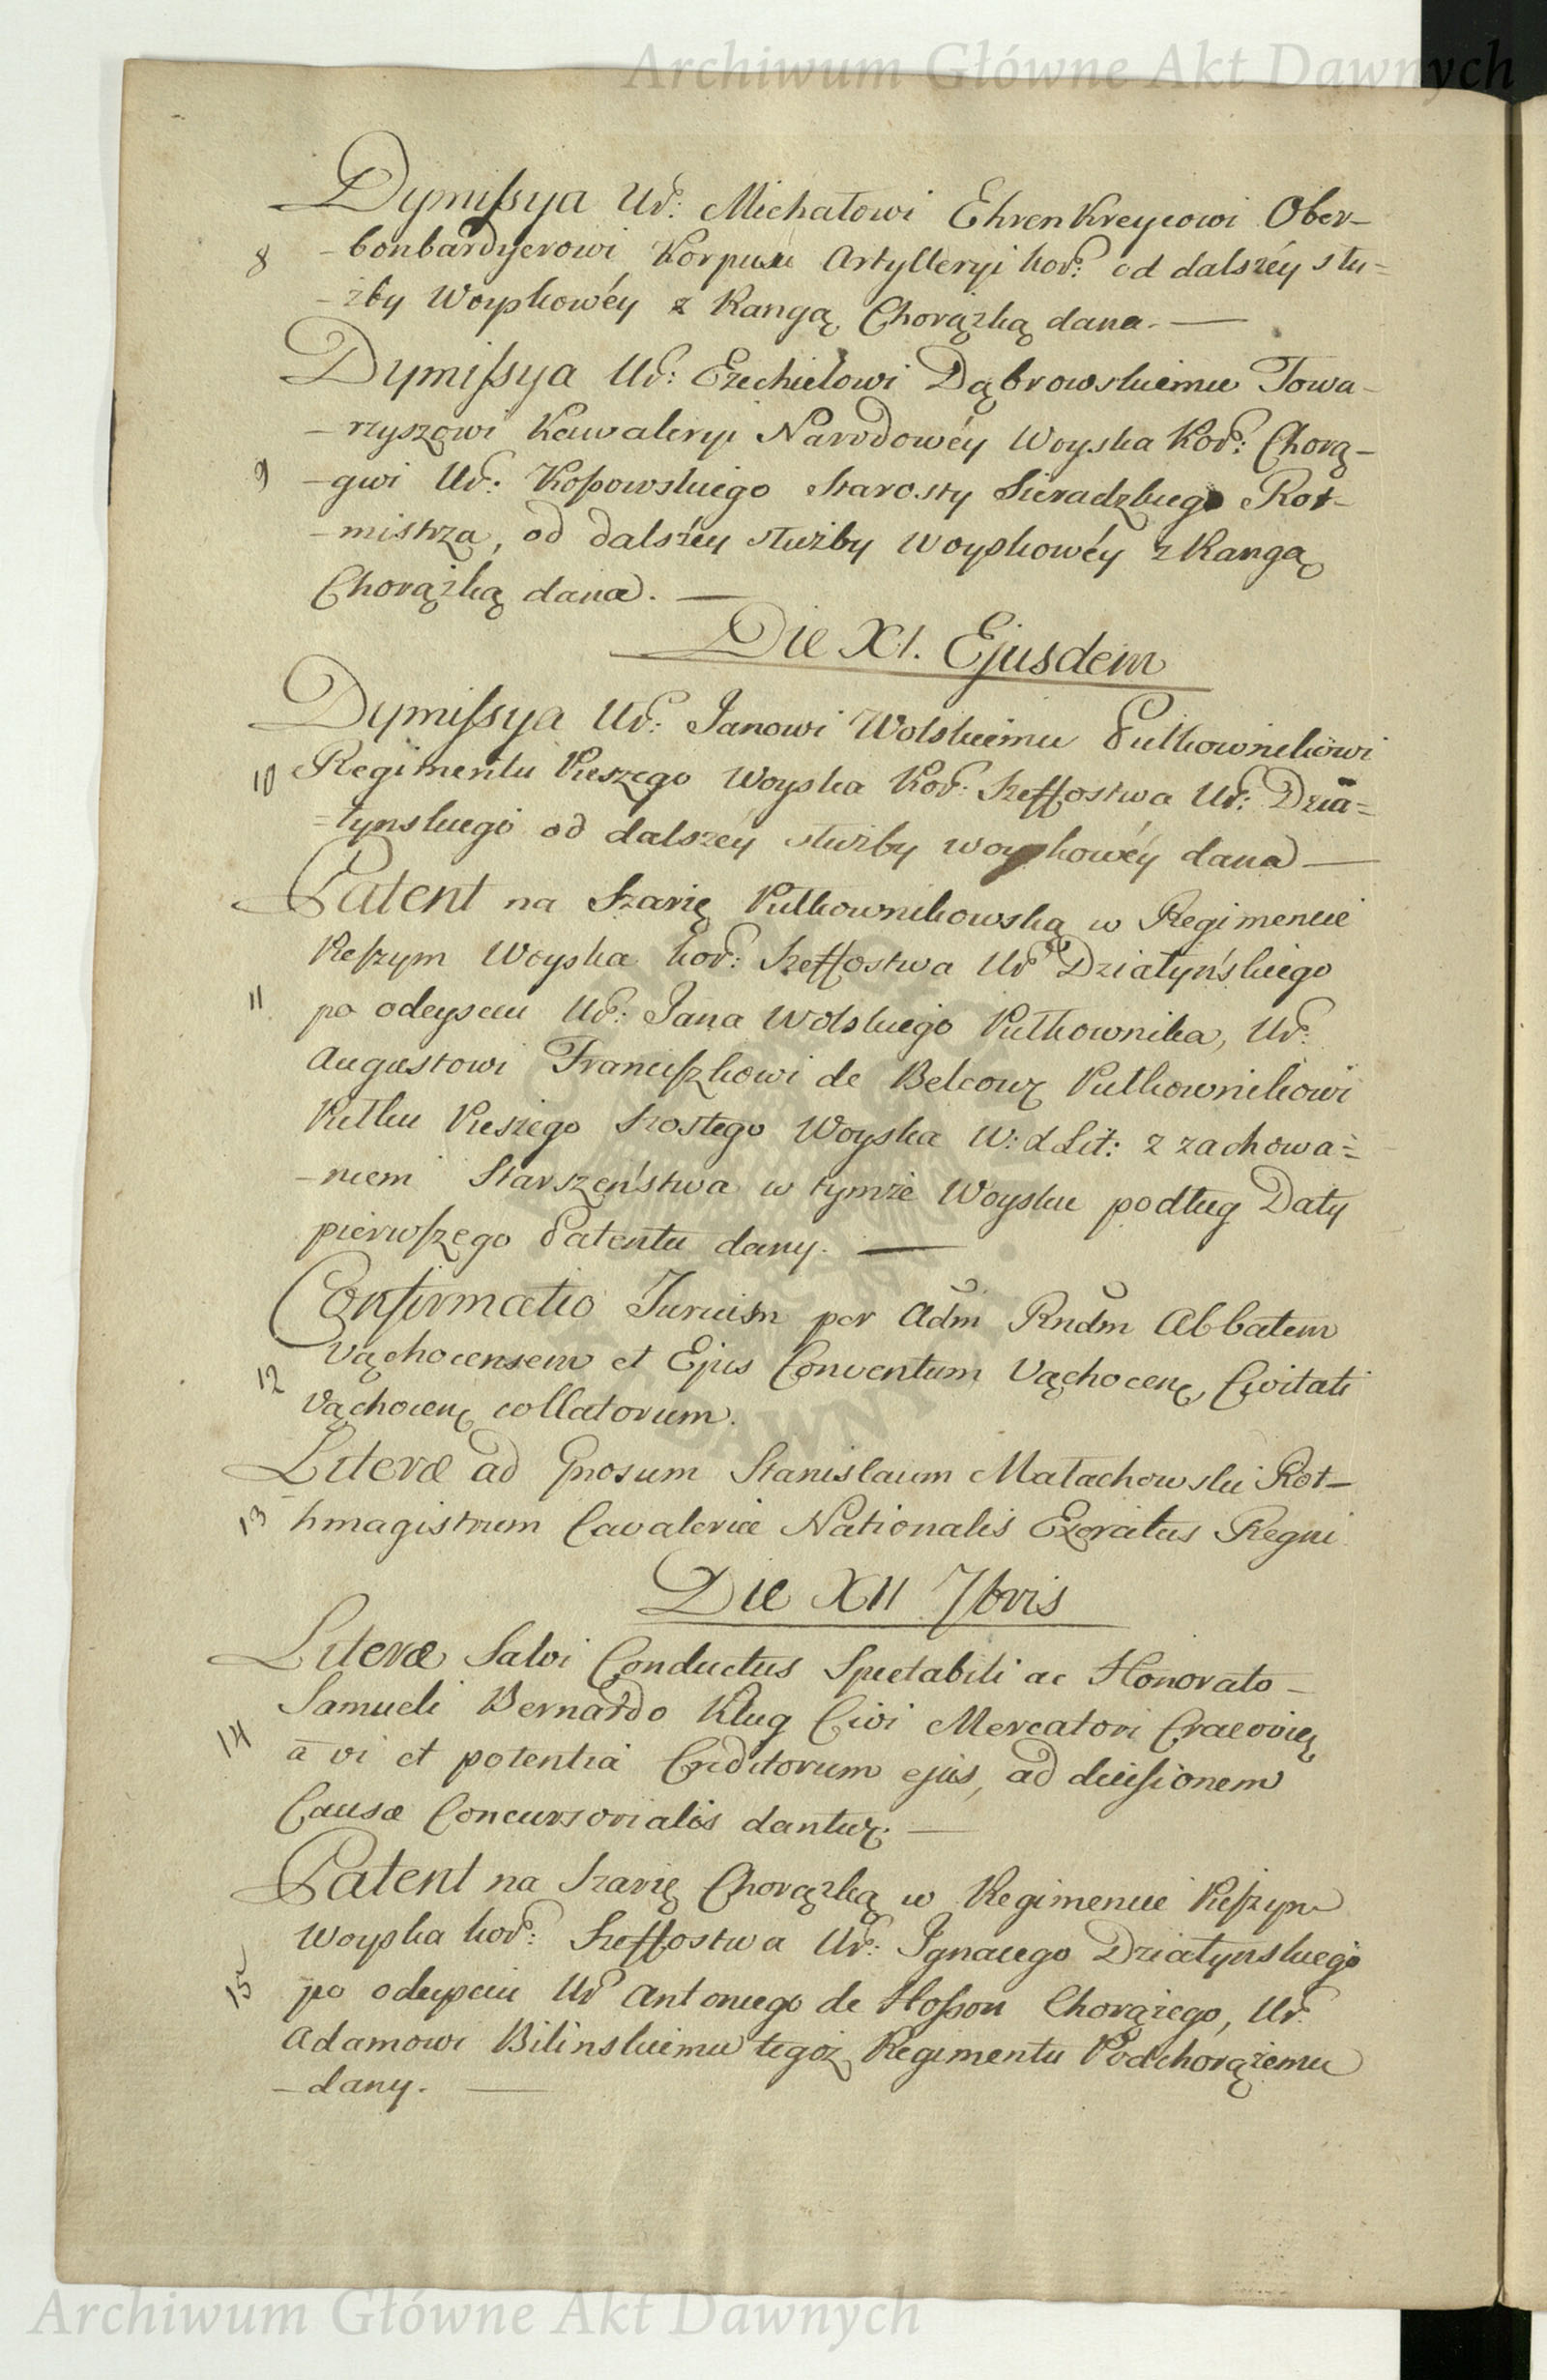 Archiwum Główne Akt Dawnych
Dymissya Ur: Michałowi Ehrenkreycowi Ober-
8 -bonbardyerowi Korpusu Artylleryi kor: od dalszéy słu=
-żby Woyskowéy z Rangą Chorążką dana. —
Dymissya Ur: Ezechielowi Dąbrowskiemu Towa-
-rzyszowi Kawaleryi Narodowéy Woyska Kor: Chorą-
9 -gwi Ur: Kossowskiego Starosty Sieradzkiego Rot-
-mistrza, od dalszéy służby Woyskowéy z Rangą
Chorążką dana. —
Die XI. Ejusdem
Dymissya Ur: Janowi Wolskiemu Pułkownikowi
10 Regimentu Pieszego Woyska Kor: Szeffostwa Ur: Dzia=
=łynskiego od dalszéy służby woyskowéy dana —
Patent na Szarżę Pułkownikowską w Regimencie
Pieszym Woyska kor: Szeffostwa Ur Działyńskiego
11 po odeysciu Ur: Jana Wolskiego Pułkownika, Ur:
Augustowi Franciszkowi de Belcour Pułkownikowi
Pułku Pieszego Szostego Woyska W: X Lit: z zachowa=
-niem Starszeństwa w tymże Woysku podług Daty
pierwszego Patentu dany. —
Confirmatio Jurium per Adm Rndm Abbatem
12 Vąchocensem et Ejus Conventum Vąchocen, Civitati
Vąchocen collatorum.
Literæ ad Gnosum Stanislaum Małachowski Rot-
13 -hmagistrum Cavaleriæ Nationalis Exercitus Regni
Die XII 7bris
Literæ Salvi Conductus Spectabili ac Honorato -
Samueli Bernardo Kług Civi Mercatori Cracovien
14 à vi et potentia Creditorum ejus, ad decisionem
Causæ Concursorialis dantur. —
Patent na Szarżę Chorążką w Regimencie Pieszym
Woyska kor: Szeffostwa Ur: Ignacego Działynskiego
15 po odeysciu Ur Antoniego de Hosson Chorążego, Ur:
Adamowi Bilinskiemu tegoż Regimentu Podchorążemu
-dany. —
Archiwum Główne Akt Dawnych